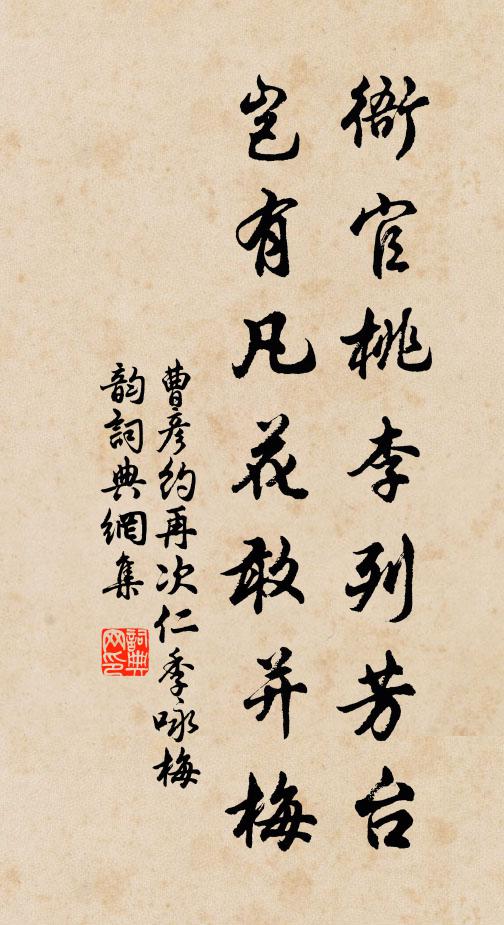 衙官桃李列芳台
豈有凡花敢并梅
曹彦约再次仁季咏梅
韵詞典網集
詞典网印